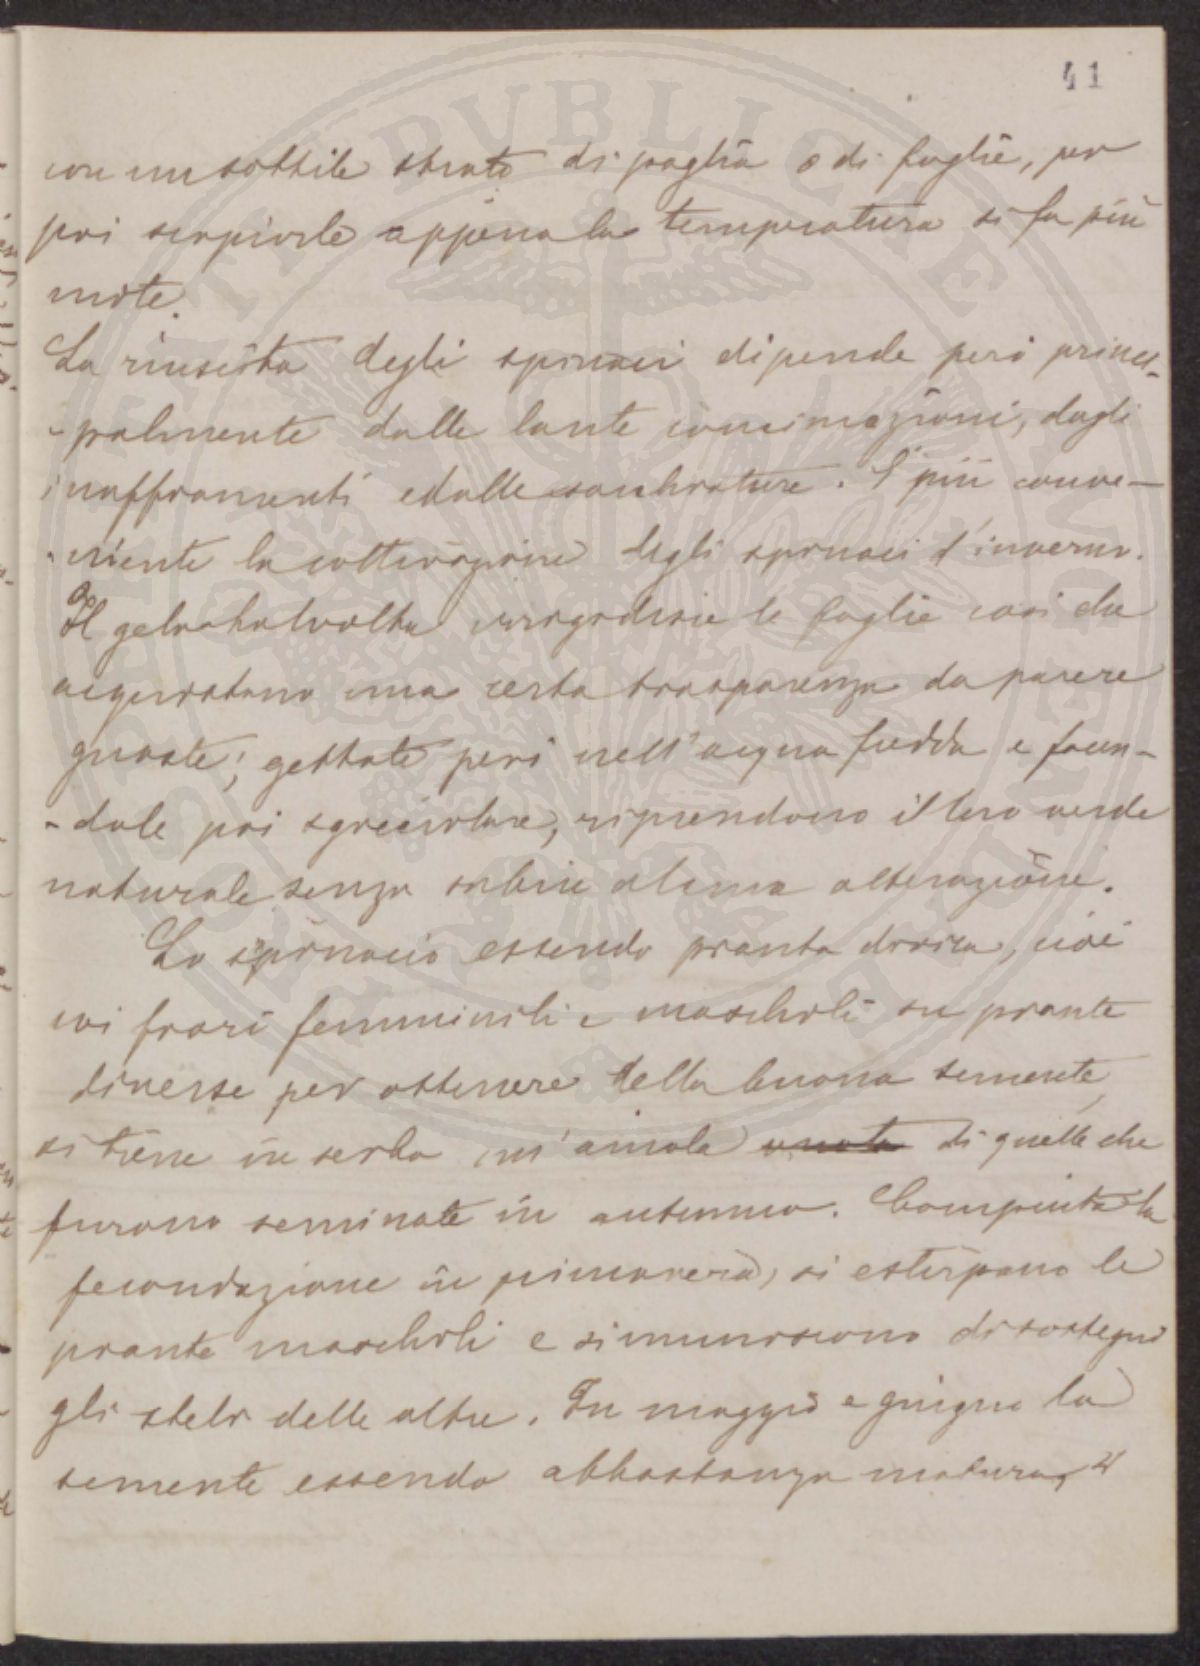 41
con un sottile strato di paglia o di foglie, per
poi scoprirle appena la temperatura si fa più
mite.
La riuscita degli spinaci dipende però princi-
-palmente dalle laute concimazioni, dagli
inaffiamenti e dalle sarchiature. È più conve-
-niente la coltivazione degli spinaci d'inverno.
Il gelo talvolta irrigidisce le foglie così che
acquistano una certa trasparenza da parere
guaste; gettate però nell'acqua fredda e facen-
-dole poi sgocciolare, riprendono il loro verde
naturale senza subire alcuna alterazione.
Lo spinacio essendo pianta dioica, cioè
coi fiori femminili e maschili su piante
diverse per ottenere della buona semente,
si tiene in serbo un'aiuola di quelle che
furono seminate in autunno. Compiuta la
fecondazione in primavera, si estirpano le
piante maschili e si muniscono di sostegni
gli steli delle altre. In maggio e giugno la
semente essendo abbastanza matura, si
PUBLICAE